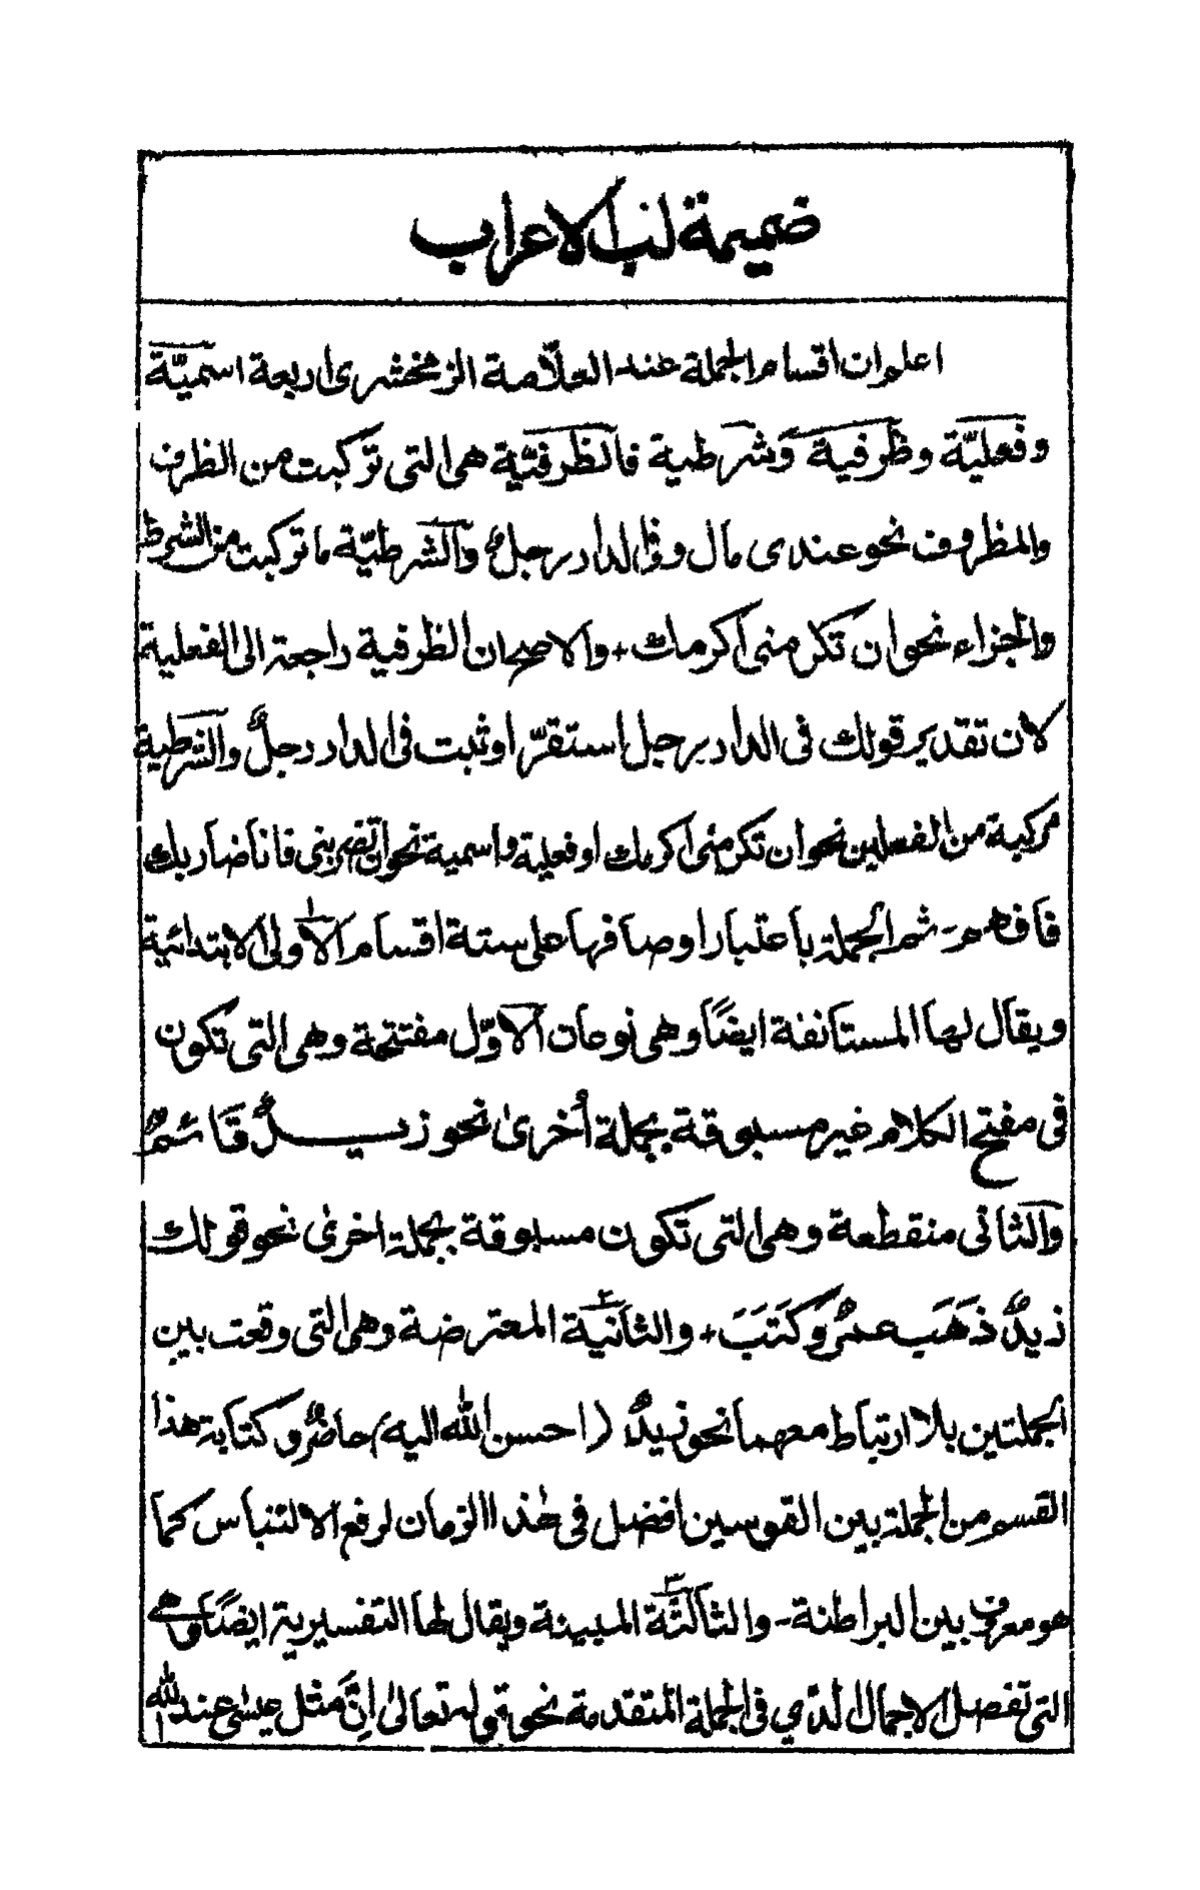 ضميمة لب الاعراب
اعلم ان اقسام الجملة عند العلّامة الزمخشرى اربعة اسميّة
وفعليّة وظرفية وشرطية فالظرفيّة هى التى تركبت من الظرف
والمظروف نحو عندى مال وفى الدار رجلٌ والشرطيّة ما تركبت من الشرط
والجزاء نحو ان تكرمنى اكرمك + والاصح ان الظرفية راجعة الى الفعلية
لان تقدير قولك فى الدار رجل استقرّ او ثبت فى الدار رجلٌ والشرطية
مركبة من الفعلين نحو ان تكرمنى اكرمك او فعلية واسمية نحو ان تضربنى فانا ضاربك
فافهم - ثم الجملة باعتبار اوصافها على ستة اقسام الاولى الابتدائية
ويقال لها المستانفة ايضًا وهى نوعان الاوّل مفتتحة وهى التى تكون
فى مفتح الكلام غير مسبوقة بجملة أخرىٰ نحو زيدٌ قائمٌ
والثانى منقطعة وهى التى تكون مسبوقة بجملة اخرىٰ نحو قولك
زيدٌ ذَهَبَ عمرٌو كَتَبَ + والثانيّة المعترضة وهى التى وقعت بين
الجملتين بلا ارتباط معهما نحو زيدٌ (احسن الله اليه) حاضرٌ وكتابة هذا
القسم من الجملة بين القوسين افضل فى هٰذا الزمان لرفع الالتباس كما
هو معروف بين البراطنة - والثالثة المبينة ويقال لها التفسيرية ايضًا وهى
التى تفصل الاجمال الذى فى الجملة المتقدمة نحو قوله تعالىٰ اِنَّ مَثل عيسٰى عند الله